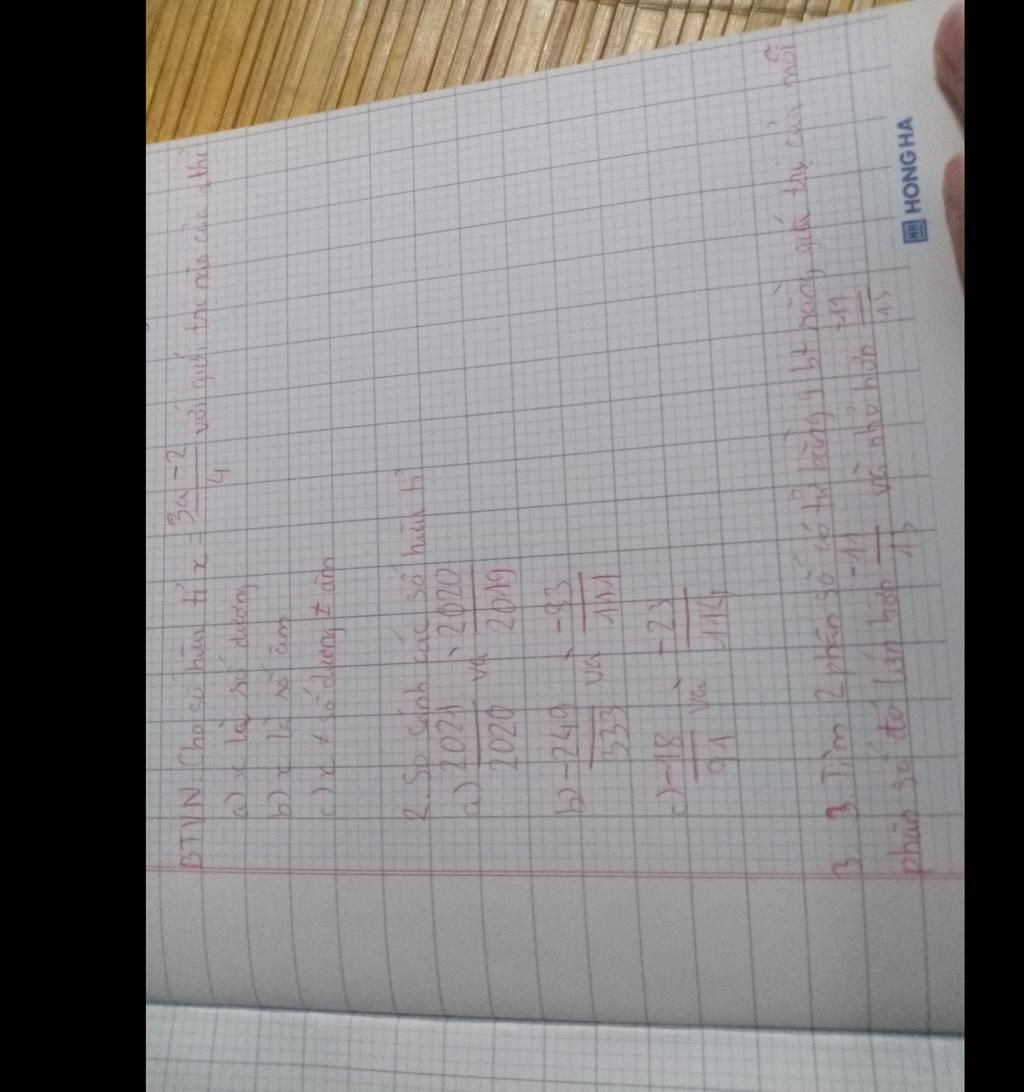 BTVN: Cho số hữu tỉ x = (3a - 2)/4 với giá trị nào của a thì
a) x là số dương
b) x là số âm
c) x ≠ số dương ≠ âm
2. So sánh các số hữu tỉ
a) 2021/2020 và 2020/2019
b) -249/333 và -83/111
c) -18/91 và -23/114
3. Tìm 2 phân số có tử bằng 9 bt rằng giá trị của mỗi
phân số đó lớn hơn -11/13 và nhỏ hơn -11/15
HH HONG HA